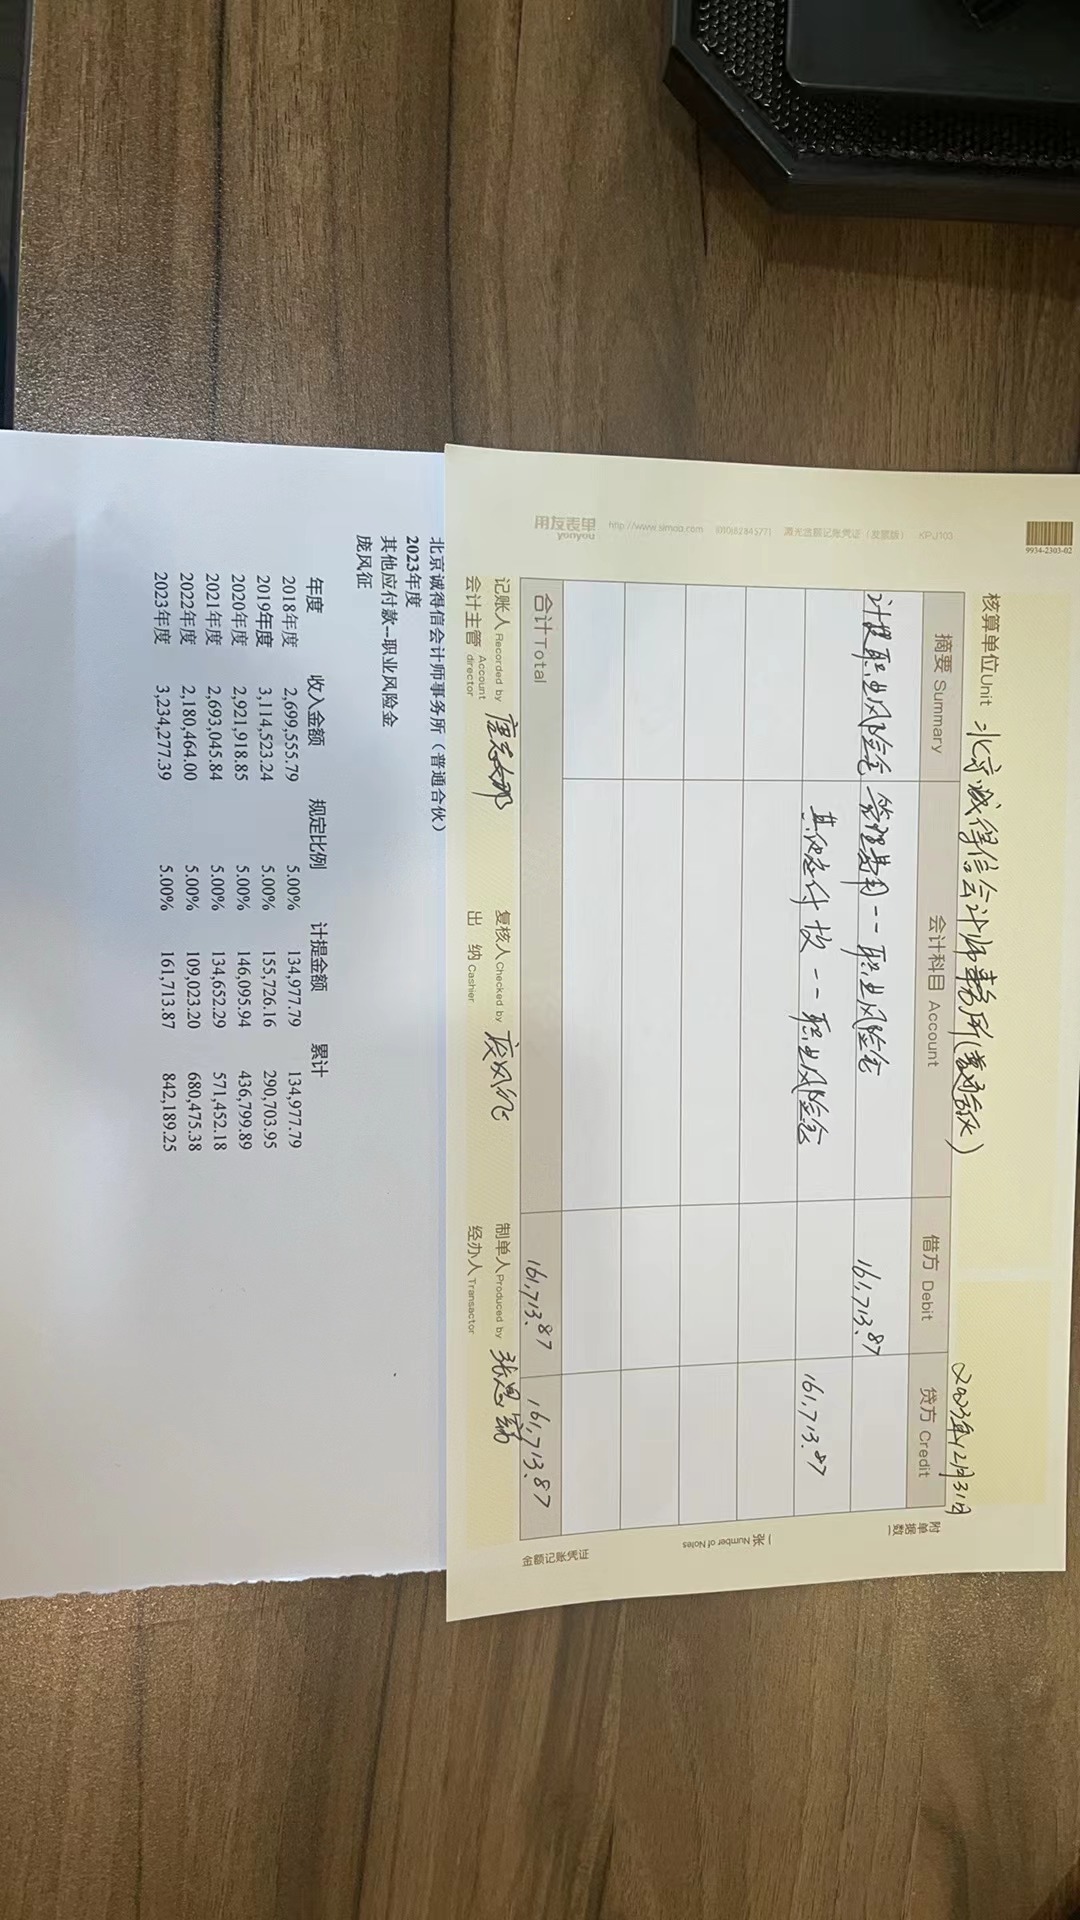 9934-2303-02
核算单位Unit 北京诚得信会计师事务所(普通合伙) 2023年12月31日
摘要 Summary 会计科目 Account 借方 Debit 贷方 Credit
计提职业风险金 管理费用--职业风险金 161,713.87
其他应付款--职业风险金 161,713.87
合计Total 161,713.87 161,713.87
附单据数 一 张 Number of Notes
金额记账凭证
记账人 Recorded by 复核人 Checked by 制单人 Produced by
会计主管 Account director 出 纳 Cashier 经办人 Transactor
用友表单 yonyou http://www.simaa.com (010)62845771 激光金额记账凭证(发票版) KPJ103
北京诚得信会计师事务所(普通合伙)
2023年度
其他应付款--职业风险金
庞风征
年度 收入金额 规定比例 计提金额 累计
2018年度 2,699,555.79 5.00% 134,977.79 134,977.79
2019年度 3,114,523.24 5.00% 155,726.16 290,703.95
2020年度 2,921,918.85 5.00% 146,095.94 436,799.89
2021年度 2,693,045.84 5.00% 134,652.29 571,452.18
2022年度 2,180,464.00 5.00% 109,023.20 680,475.38
2023年度 3,234,277.39 5.00% 161,713.87 842,189.25